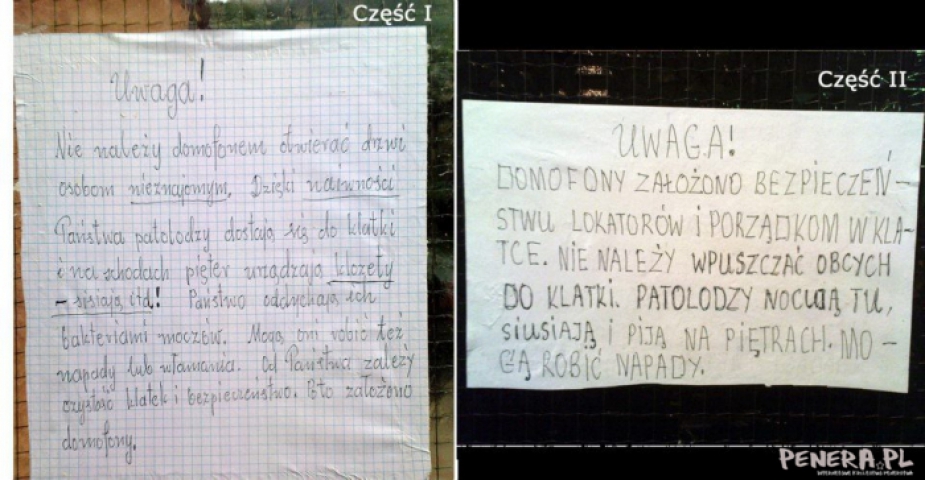 Część I
Uwaga!
Nie należy domofonem otwierać drzwi
osobom nieznajomym. Dzięki naiwności
Państwa patolodzy dostają się do klatki
i na schodach pięter urządzają klozety
- sisiają itd! Państwo oddychają ich
bakteriami moczów. Mogą oni robić też
napady lub włamania. Od Państwa zależy
czystość klatek i bezpieczeństwo. Po to założono
domofony.
Część II
UWAGA!
DOMOFONY ZAŁOŻONO BEZPIECZEŃ-
STWU LOKATORÓW i PORZĄDKOM W KLA-
TCE. NIE NALEŻY WPUSZCZAĆ OBCYCH
DO KLATKI. PATOLODZY NOCUJĄ TU,
SIUSIAJĄ i PIJĄ NA PIĘTRACH. MO-
GĄ ROBIĆ NAPADY.
PENERA.PL